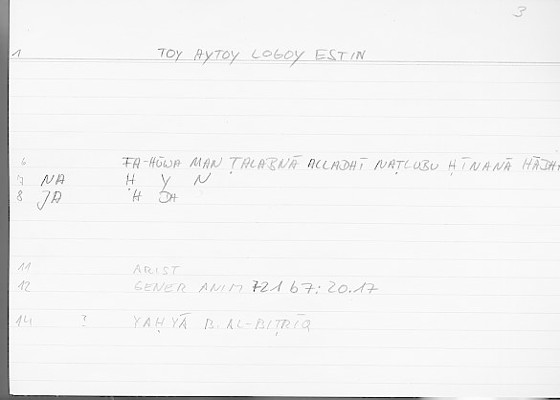 3
1 TOY AYTOY LOGOY ESTIN
6 FA-HŪWA MAN ṬALABNĀ ALLADHĪ NAṬLUBU ḤĪNANĀ HĀDH
7 NA Ḥ Y N
8 JA H DH
11 ARIST
12 GENER ANIM 721 b7: 20.17
14 ? YAḤYĀ B. AL-BIṬRĪQ